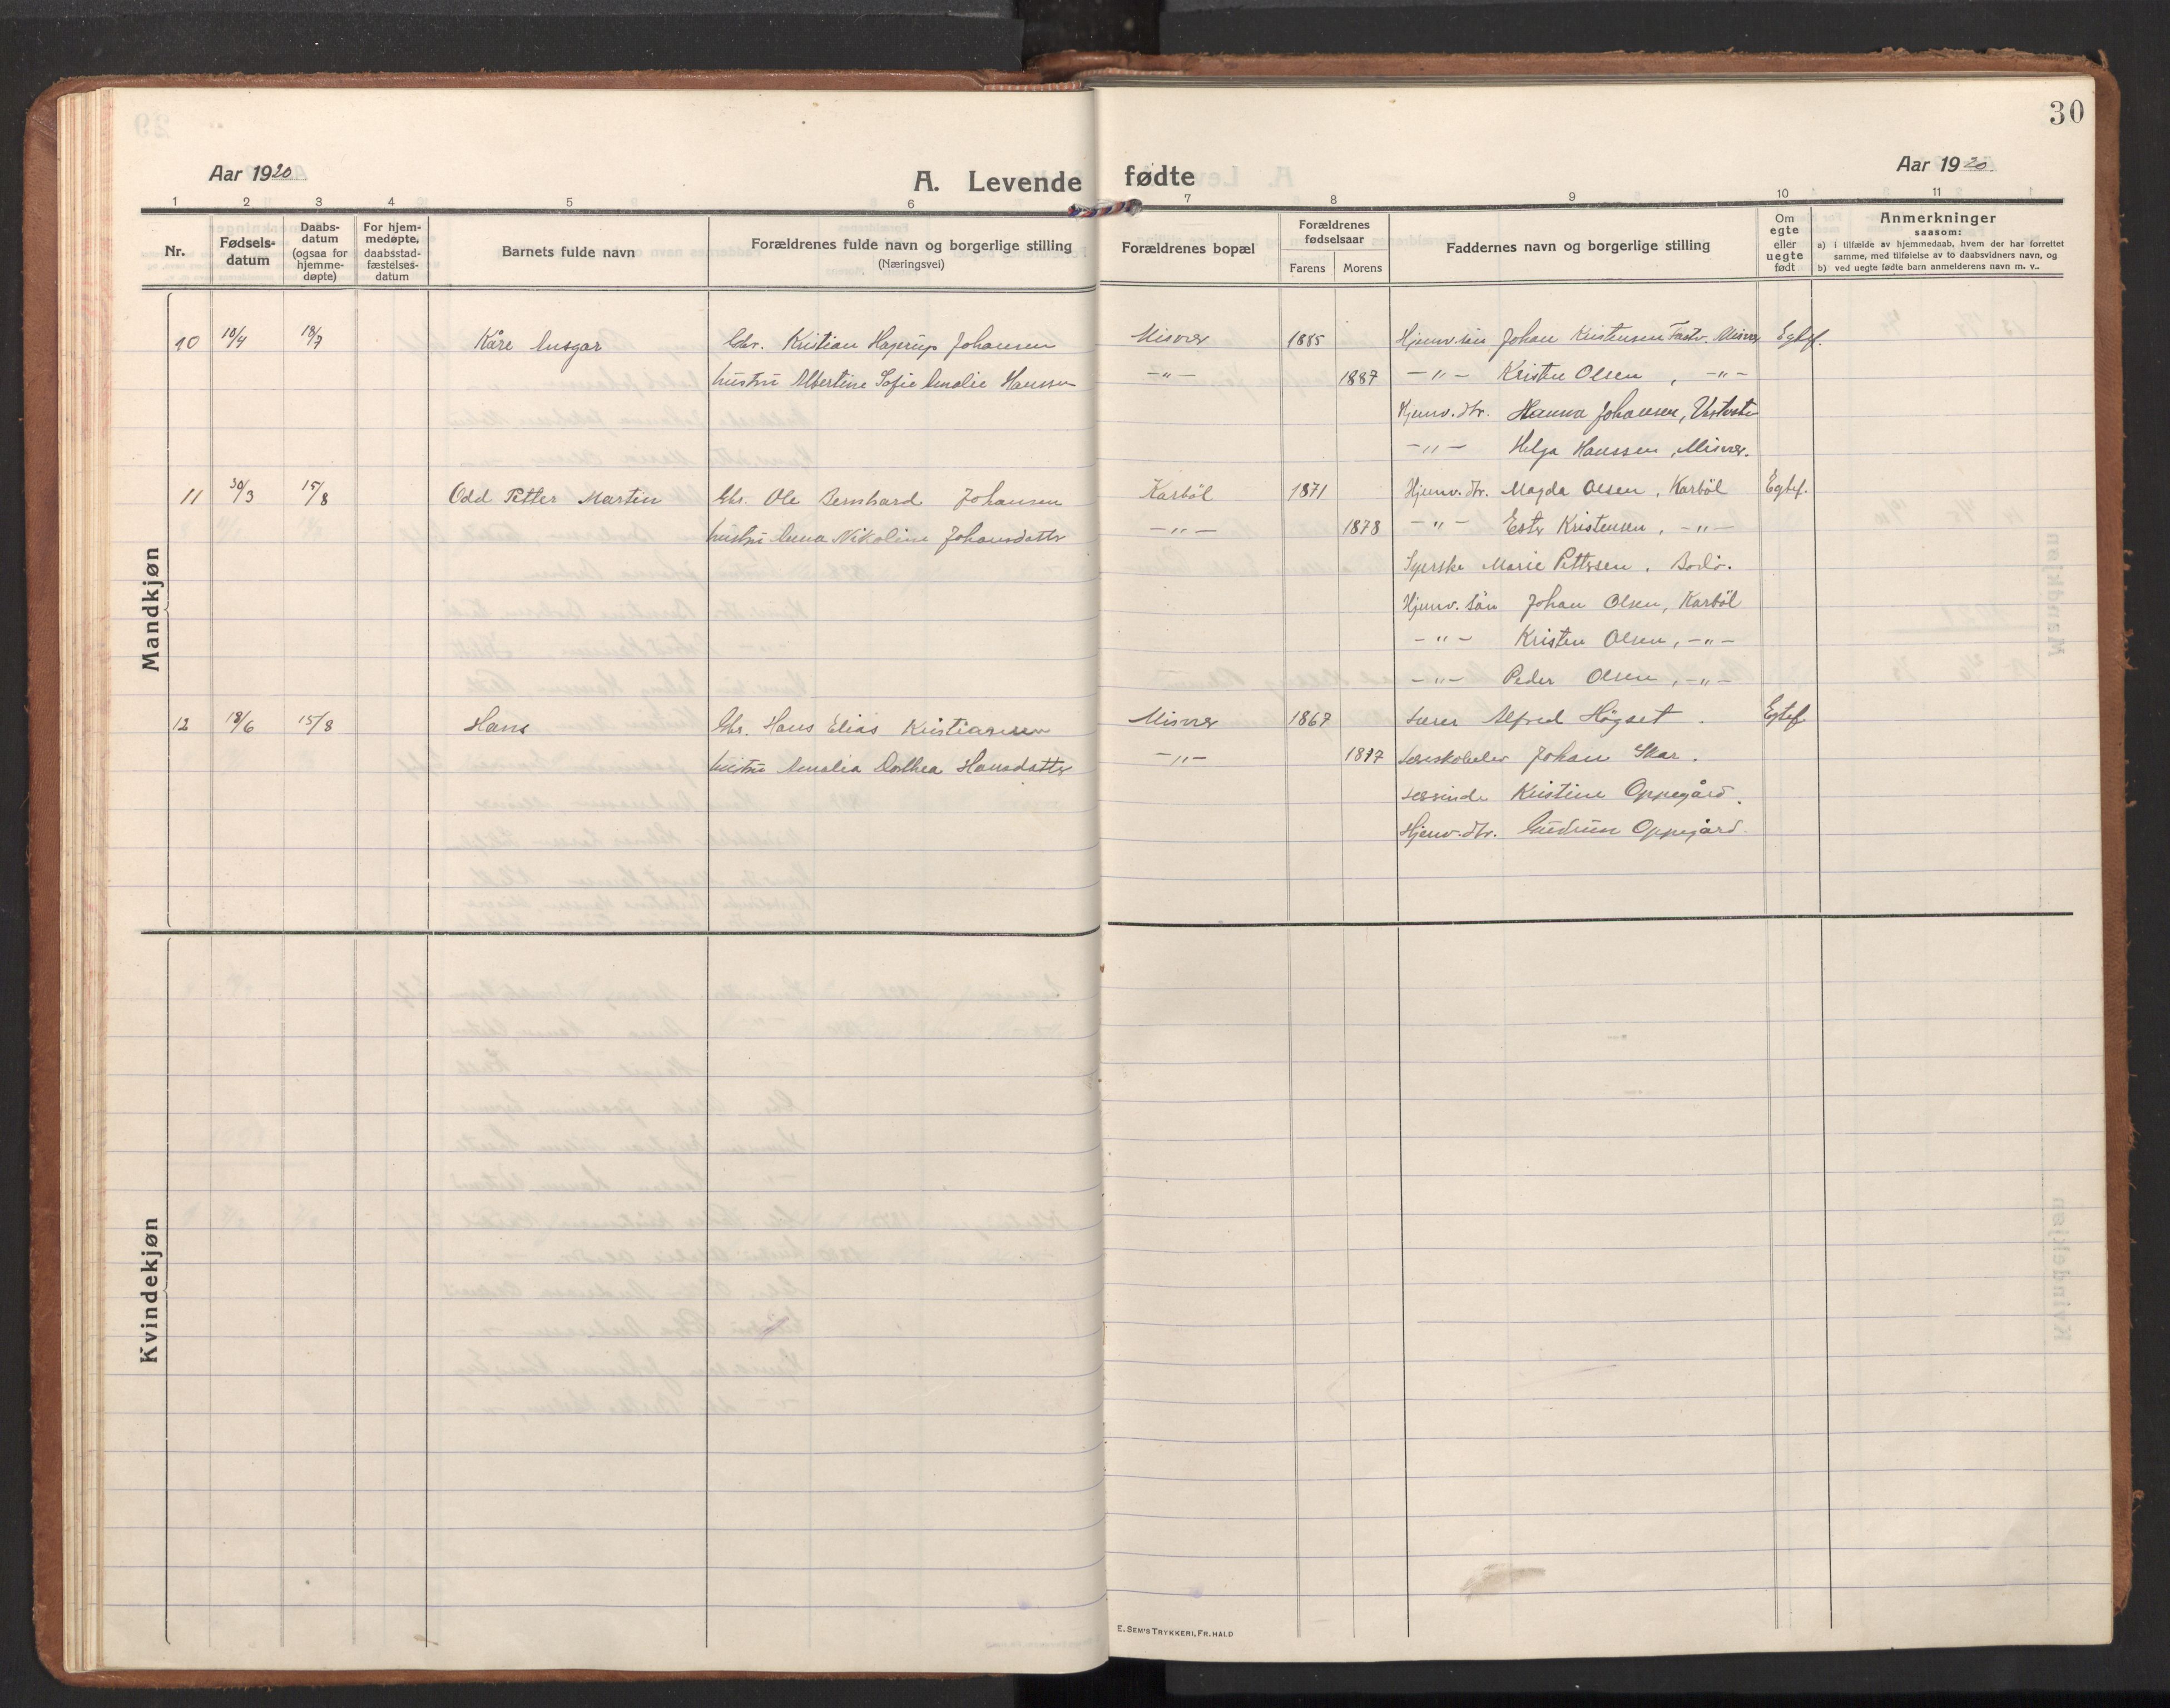 30
Aar 1920
A. Levende fødte
Aar 1920
1 2 3 4 5 6 7 8 9 10 11
Nr.
Fødsels-
datum
Daabs-
datum
(ogsaa for
hjemme-
døpte)
For hjem-
medøpte,
daabsstad-
fæstelses-
datum
Barnets fulde navn
Forældrenes fulde navn og borgerlige stilling
(Næringsvei)
Forældrenes bopæl
Forældrenes
fødselsaar
Farens Morens
Faddernes navn og borgerlige stilling
Om
egte
eller
uegte
født
Anmerkninger
saasom:
a) i tilfælde av hjemmedaab, hvem der har forrettet
samme, med tilføielse av to daabsvidners navn, og
b) ved uegte fødte barn anmelderens navn m. v..
Mandkjøn
10 10/4 18/7 Kåre Ansgar Gbr. Kristian Hagerup Johansen Misvær 1885 Hjemv. søn Johan Kristensen Misvær Egtef.
hustru Albertine Sofie Amalie Hanssen -"- 1887 -"- Kristen Olsen, -"-
Hjemv. dtr. Hanna Johansen,
-"- Helga Hanssen, Misvær.
11 30/3 15/8 Odd Petter Martin Gbr. Ole Bernhard Johansen Karbøl 1871 Hjemv. dtr. Magda Olsen, Karbøl Egtef.
hustru Anna Nikoline Johansdatter -"- 1878 -"- Ester Kristensen, -"-
Syerske Marie Pettersen, Bodø.
Hjemv. søn Johan Olsen, Karbøl
-"- Kristen Olsen, -"-
-"- Peder Olsen, -"-
12 18/6 15/8 Hans Gbr. Hans Elias Kristiansen Misvær 1867 Lærer Alfred Høgset. Egtef.
hustru Amalia Dorthea Hansdatter -"- 1877 Læreskoleelev Johan Skar.
Lærerinde Kristine Oppegård.
Hjemv. dtr. Gudrun Oppegård.
Kvindekjøn
E. SEM'S TRYKKERI, FR. HALD